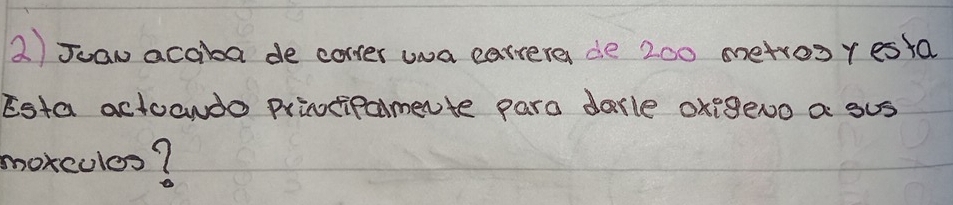 2) Juan acaba de correr una carrera de 200 metros y esta
Esta actuando principalmente para darle oxigeno a sus
moxculos?